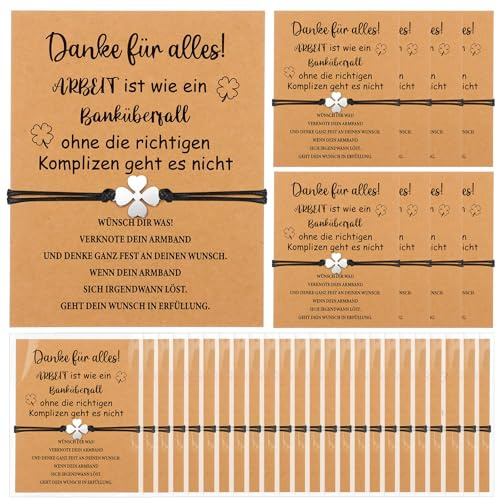 Danke für alles!
ARBEIT ist wie ein
Banküberfall
ohne die richtigen
Komplizen geht es nicht
WÜNSCH DIR WAS!
VERKNOTE DEIN ARMBAND
UND DENKE GANZ FEST AN DEINEN WUNSCH.
WENN DEIN ARMBAND
SICH IRGENDWANN LÖST.
GEHT DEIN WUNSCH IN ERFÜLLUNG.
Danke für alles! es! es! es!
ARBEIT ist wie ein
Banküberfall n n n
ohne die richtigen
Komplizen geht es nicht icht icht icht
WÜNSCH DIR WAS!
VERKNOTE DEIN ARMBAND
UND DENKE GANZ FEST AN DEINEN WUNSCH. NSCH. NSCH. NSCH.
WENN DEIN ARMBAND
SICH IRGENDWANN LÖST.
GEHT DEIN WUNSCH IN ERFÜLLUNG. G. G. G.
Danke für alles! es! es! es!
ARBEIT ist wie ein
Banküberfall n n n
ohne die richtigen
Komplizen geht es nicht icht icht icht
WÜNSCH DIR WAS!
VERKNOTE DEIN ARMBAND
UND DENKE GANZ FEST AN DEINEN WUNSCH. NSCH. NSCH. NSCH.
WENN DEIN ARMBAND
SICH IRGENDWANN LÖST.
GEHT DEIN WUNSCH IN ERFÜLLUNG. G. G. G.
Danke für alles!
ARBEIT ist wie ein
Banküberfall
ohne die richtigen
Komplizen geht es nicht
WÜNSCH DIR WAS!
VERKNOTE DEIN ARMBAND
UND DENKE GANZ FEST AN DEINEN WUNSCH.
WENN DEIN ARMBAND
SICH IRGENDWANN LÖST.
GEHT DEIN WUNSCH IN ERFÜLLUNG.